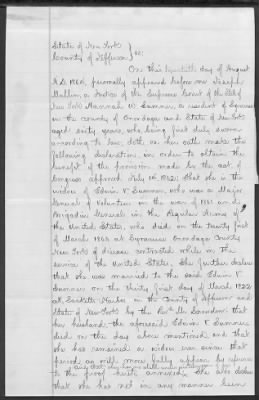 State of New York
County of Jefferson } SS:
On this twentieth day of August
A.D. 1864, personally appeared before me Joseph
Mullin, a Justice of the Supreme Court of the State of
New York Hannah W. Sumner, a resident of Syracuse
in the county of Onondaga and State of New York
aged sixty years, who, being first duly sworn
according to law, doth on her oath make the
following declaration, in order to obtain the
benefit of the provision made by the act of
Congress approved July 14, 1862: That she is the
widow of Edwin V. Sumner, who was a Major
General of Volunteers in the war of 1861 and
Brigadier General in the Regular Army of
the United States, who died on the twenty first
of March 1863 at Syracuse Onondaga County
New York of disease contracted while in the
service of the United States. She further declares
that she was married to the said Edwin V.
Sumner on the thirty first day of March 1822
at Sacketts Harbor in the County of Jefferson and
State of New York by the Rev. Mr. Snowdon that
her husband the aforesaid Edwin V. Sumner
died on the day above mentioned, and that
she has remained a widow ever since that
period as will more fully appear by reference
to the proof hereto annexed. She also declares
that she has not in any manner been